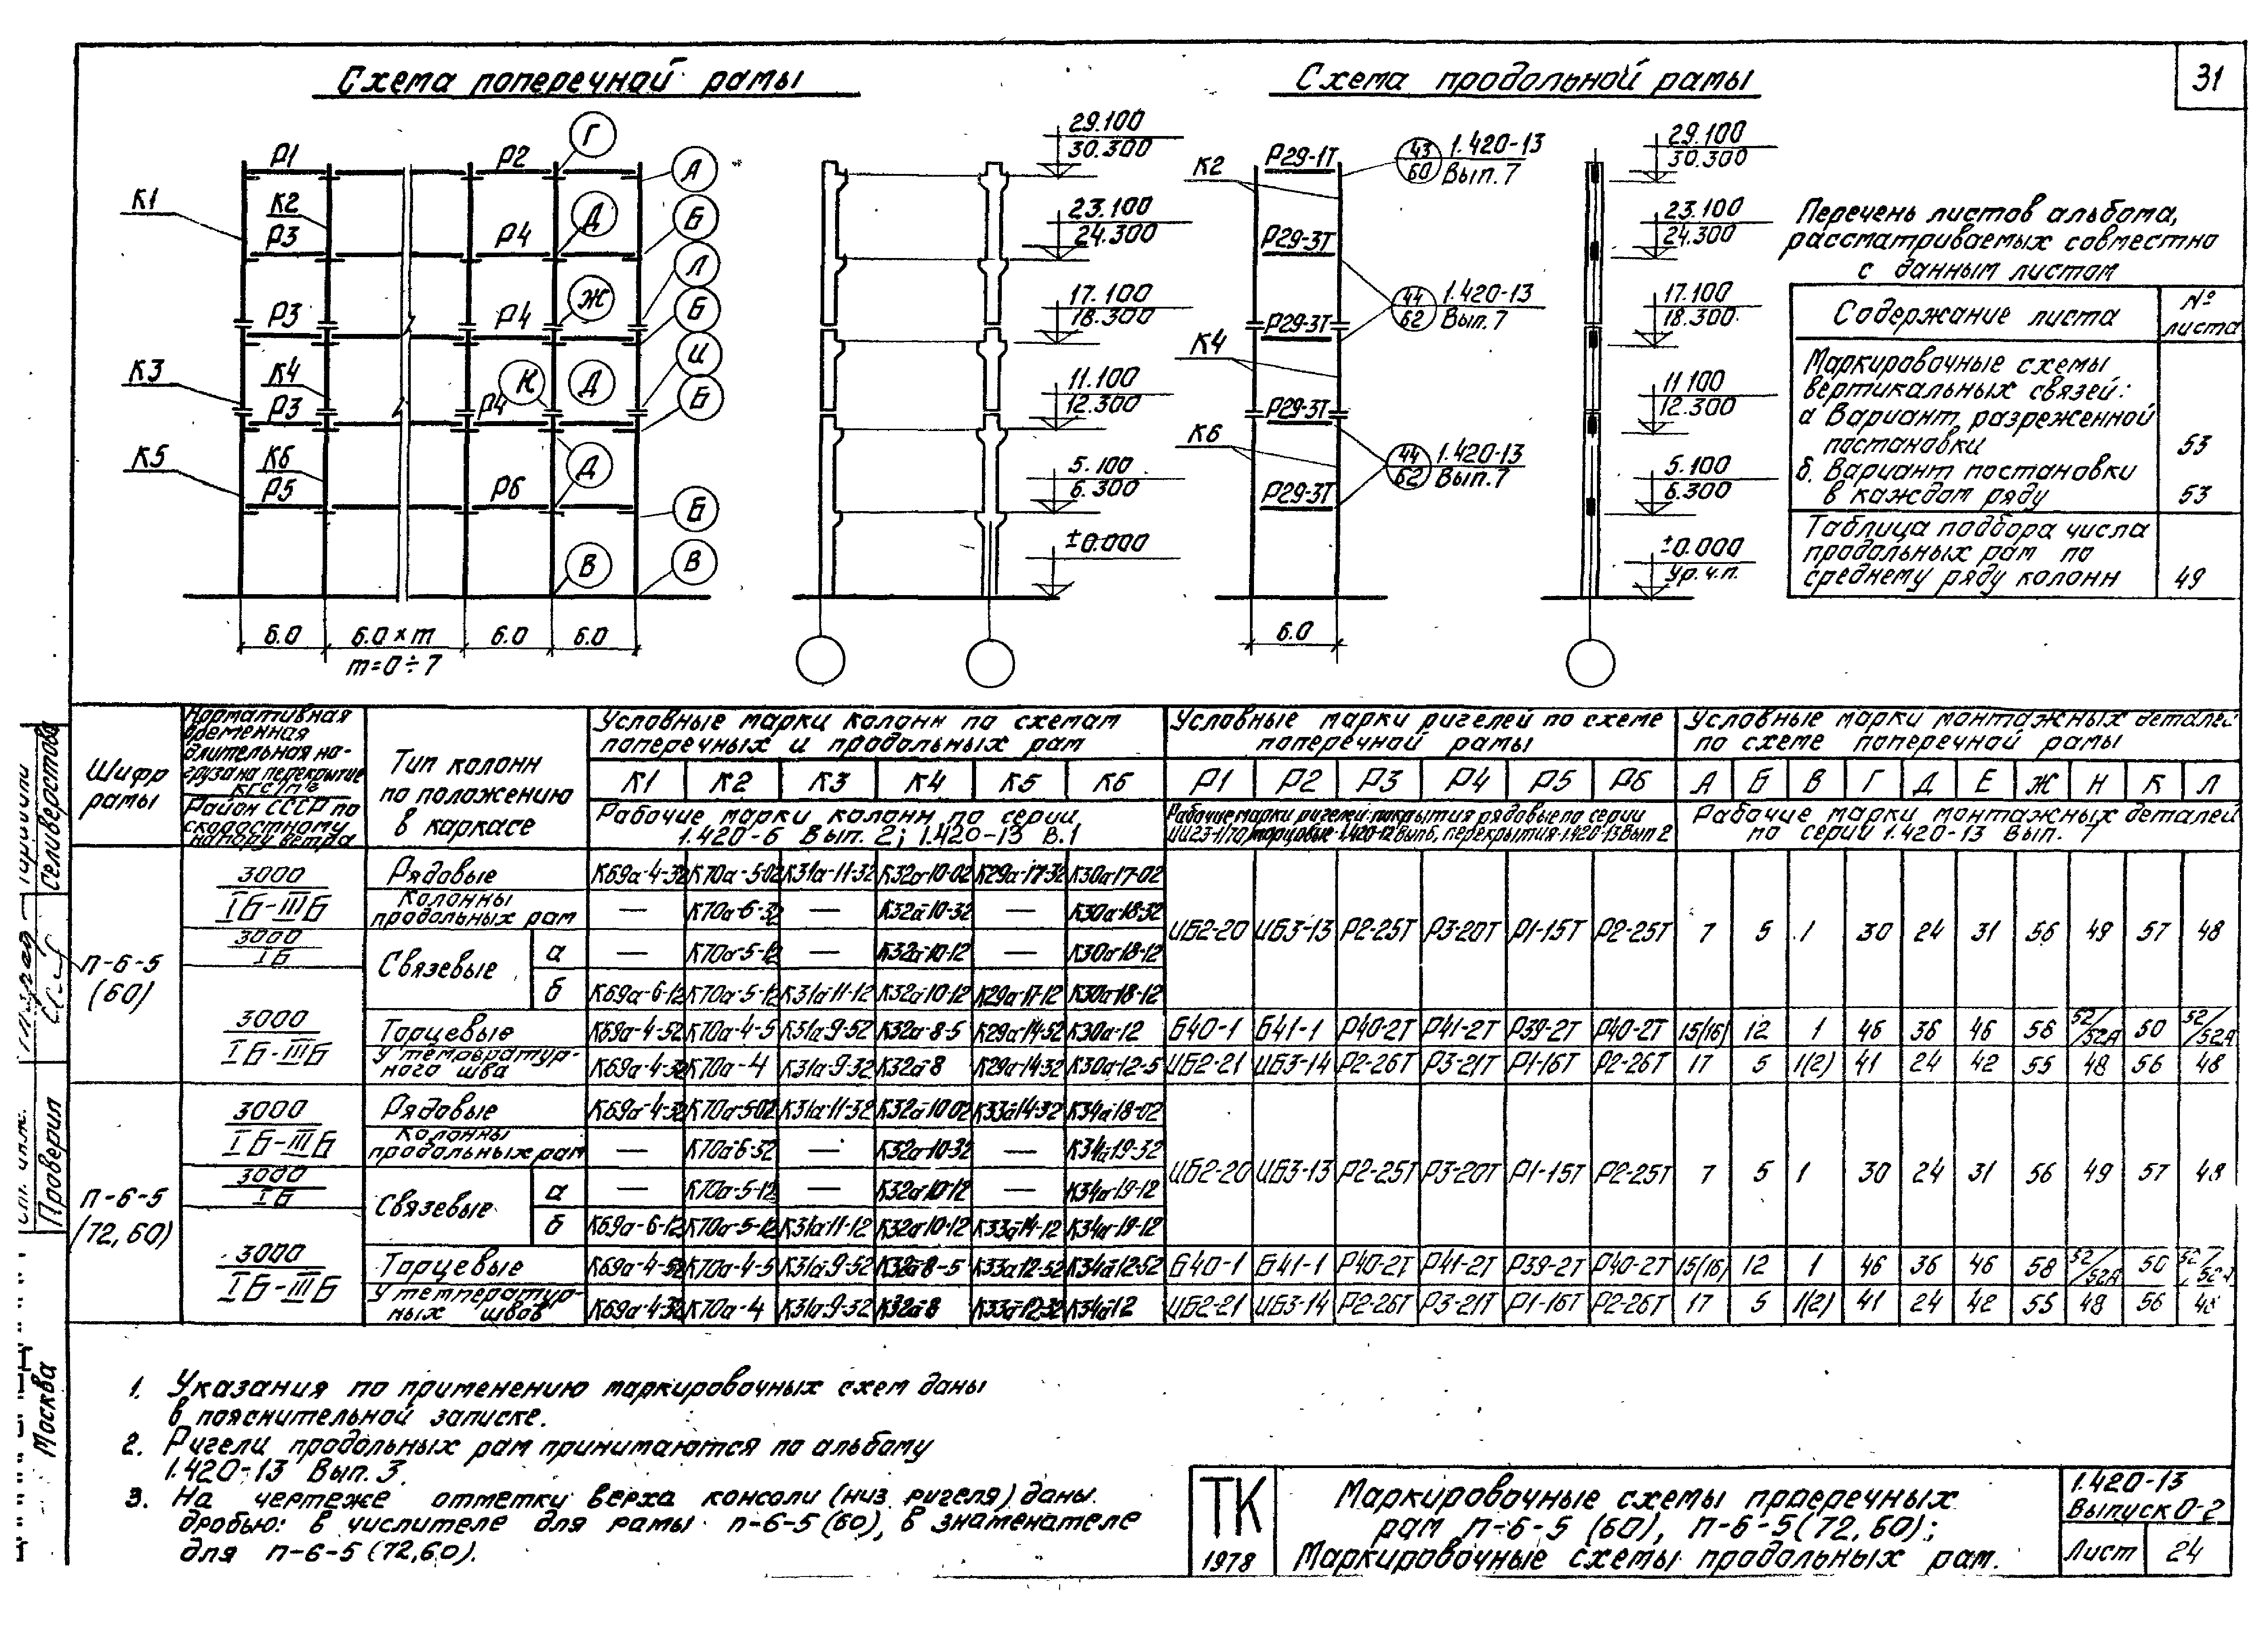 31
Схема поперечной рамы
Схема продольной рамы
Р1 Р2 Г А
К1 К2 Д Б
Р3 Р4 Л
Ж Б
Р3 Р4 И
К3 К4 К Д Б
Р3 Р4
К5 К6 Д
Р5 Р6 Б
В В
6.0 6.0×m 6.0 6.0
m=0÷7
29.100
30.300
23.100
24.300
17.100
18.300
11.100
12.300
5.100
6.300
±0.000
К2 Р29-1Т 43 1.420-13
60 Вып.7
Р29-3Т
44 1.420-13
62 Вып.7
Р29-3Т
К4
Р29-3Т
К6
44 1.420-13
62 Вып.7
Р29-3Т
6.0
29.100
30.300
23.100
24.300
17.100
18.300
11.100
12.300
5.100
6.300
±0.000
Ур.ч.п.
Перечень листов альбома,
рассматриваемых совместно
с данным листом
Содержание листа № листа
Маркировочные схемы
вертикальных связей:
а Вариант разреженной
постановки 53
б. Вариант постановки
в каждом ряду 53
Таблица подбора числа
продольных рам по
среднему ряду колонн 49
Шифр рамы
Нормативная временная длительная нагрузка на перекрытие кгс/м²
Район СССР по скоростному напору ветра
Тип колонн по положению в каркасе
Условные марки колонн по схемам поперечных и продольных рам
К1 К2 К3 К4 К5 К6
Рабочие марки колонн по серии 1.420-6 Вып. 2; 1.420-13 В.1
Условные марки ригелей по схеме поперечной рамы
Р1 Р2 Р3 Р4 Р5 Р6
Рабочие марки ригелей: покрытия рядовые по серии ИИ23-1/70, торцовые-1.420-12 Вып6, перекрытия-1.420-13 Вып 2
Условные марки монтажных деталей по схеме поперечной рамы
А Б В Г Д Е Ж Н К Л
Рабочие марки монтажных деталей по серии 1.420-13 Вып. 7
П-6-5 (60)
3000 IБ-IIIБ Рядовые К69а-4-32 К70а-5-02 К31а-11-32 К32а-10-02 К29а-17-32 К30а-17-02
Колонны продольных рам — К70а-6-32 — К32а-10-32 — К30а-18-32
ИБ2-20 ИБ3-13 Р2-25Т Р3-20Т Р1-15Т Р2-25Т 7 5 1 30 24 31 56 49 57 48
3000 IБ Связевые а — К70а-5-12 — К32а-10-12 — К30а-18-12
б К69а-6-12 К70а-5-12 К31а-11-12 К32а-10-12 К29а-17-12 К30а-18-12
3000 IБ-IIIБ Торцевые К69а-4-52 К70а-4-5 К31а-9-52 К32а-8-5 К29а-14-52 К30а-12 Б40-1 Б41-1 Р40-2Т Р41-2Т Р39-2Т Р40-2Т 15(16) 12 1 46 36 46 58 52/52А 50 52/52А
У температурного шва К69а-4-32 К70а-4 К31а-9-32 К32а-8 К29а-14-32 К30а-12-5 ИБ2-21 ИБ3-14 Р2-26Т Р3-21Т Р1-16Т Р2-26Т 17 5 1(2) 41 24 42 55 48 56 48
П-6-5 (72,60)
3000 IБ-IIIБ Рядовые К69а-4-32 К70а-5-02 К31а-11-32 К32а-10-02 К33а-14-32 К34а-18-02
Колонны продольных рам — К70а-6-32 — К32а-10-32 — К34а-19-32
ИБ2-20 ИБ3-13 Р2-25Т Р3-20Т Р1-15Т Р2-25Т 7 5 1 30 24 31 56 49 57 48
3000 IБ Связевые а — К70а-5-12 — К32а-10-12 — К34а-19-12
б К69а-6-12 К70а-5-12 К31а-11-12 К32а-10-12 К33а-14-12 К34а-19-12
3000 IБ-IIIБ Торцевые К69а-4-52 К70а-4-5 К31а-9-52 К32а-8-5 К33а-12-52 К34а-12-52 Б40-1 Б41-1 Р40-2Т Р41-2Т Р39-2Т Р40-2Т 15(16) 12 1 46 36 46 58 52/52А 50 52/52А
У температурных швов К69а-4-32 К70а-4 К31а-9-32 К32а-8 К33а-12-32 К34а-12 ИБ2-21 ИБ3-14 Р2-26Т Р3-21Т Р1-16Т Р2-26Т 17 5 1(2) 41 24 42 55 48 56 48
1. Указания по применению маркировочных схем даны
в пояснительной записке.
2. Ригели продольных рам принимаются по альбому
1.420-13 Вып. 3.
3. На чертеже отметки верха консоли (низ ригеля) даны
дробью: в числителе для рамы п-6-5 (60), в знаменателе
для п-6-5 (72,60).
ТК
1978
Маркировочные схемы поперечных
рам п-6-5 (60), п-6-5 (72,60);
Маркировочные схемы продольных рам.
1.420-13
Выпуск 0-2
Лист 24
Селиверстова
Проверил
Москва